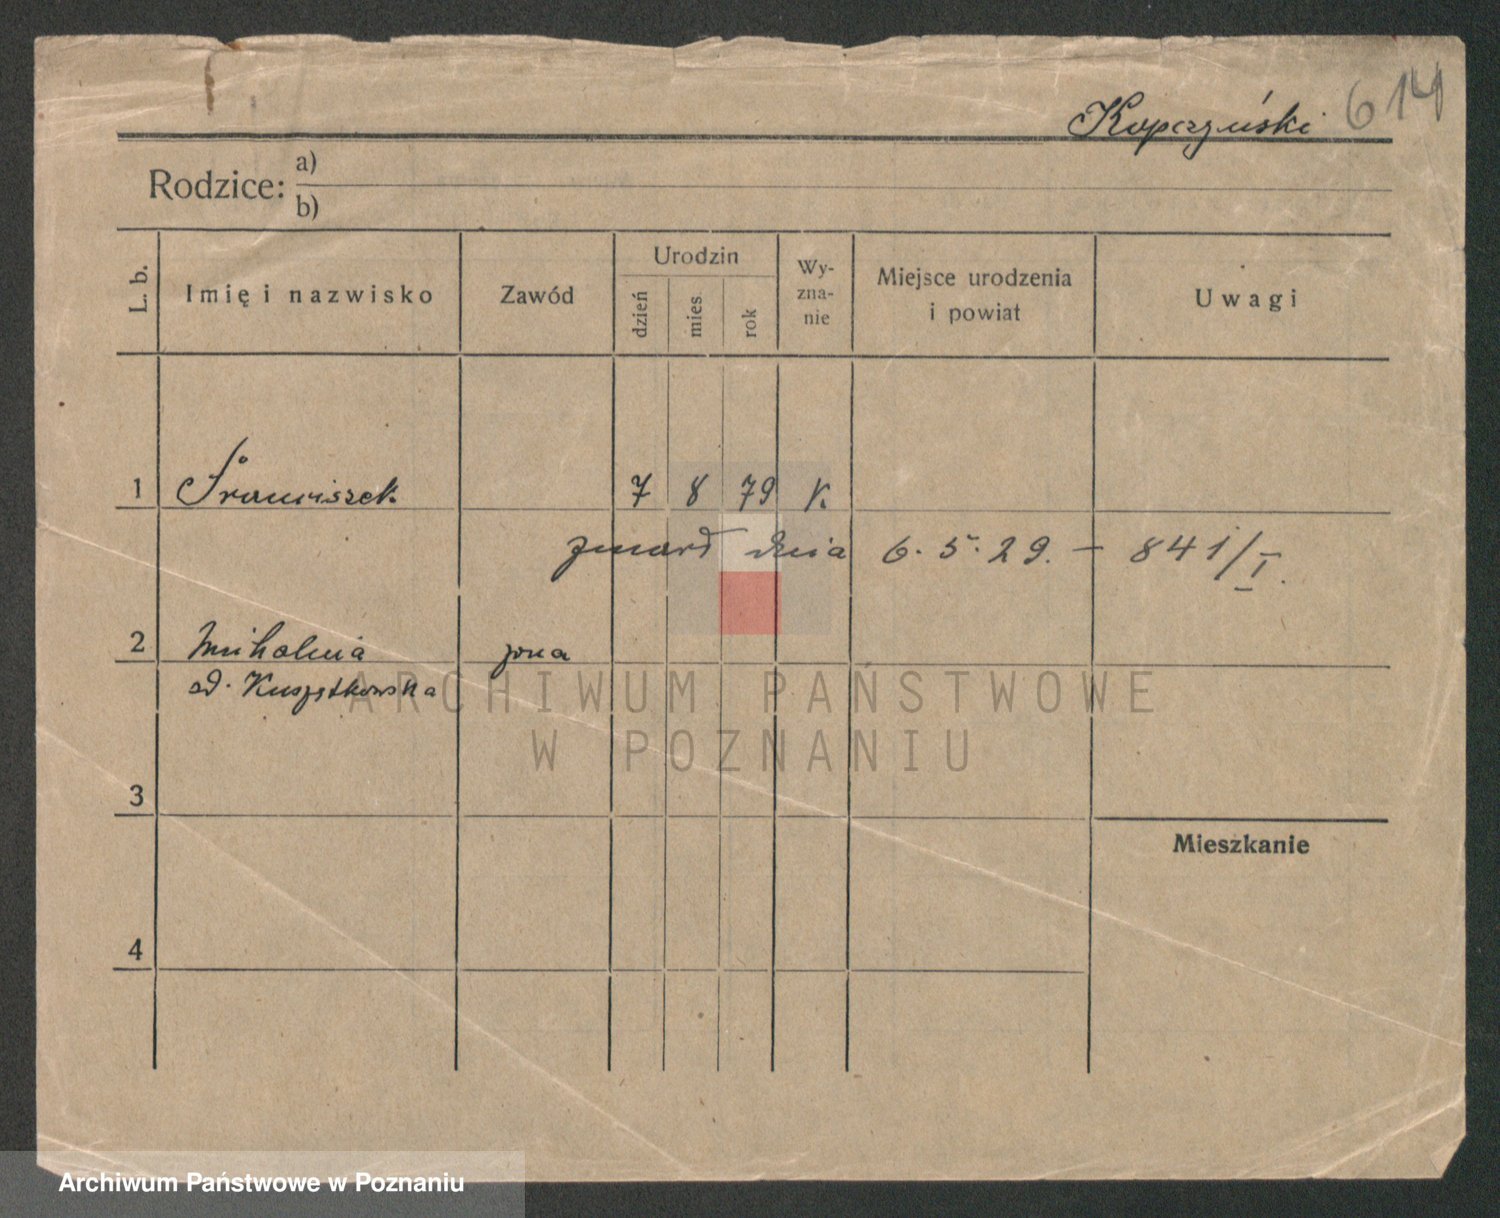 Kopczyński 614
Rodzice: a)
b)
L. b. Imię i nazwisko Zawód Urodzin dzień mies. rok Wy-zna-nie Miejsce urodzenia i powiat Uwagi
1 Franciszek 7 8 79 K
zmarł dnia 6. 5. 29. — 841/I.
2 Michalina żona
ARCHIWUM PAŃSTWOWE
W POZNANIU
3
Mieszkanie
4
Archiwum Państwowe w Poznaniu